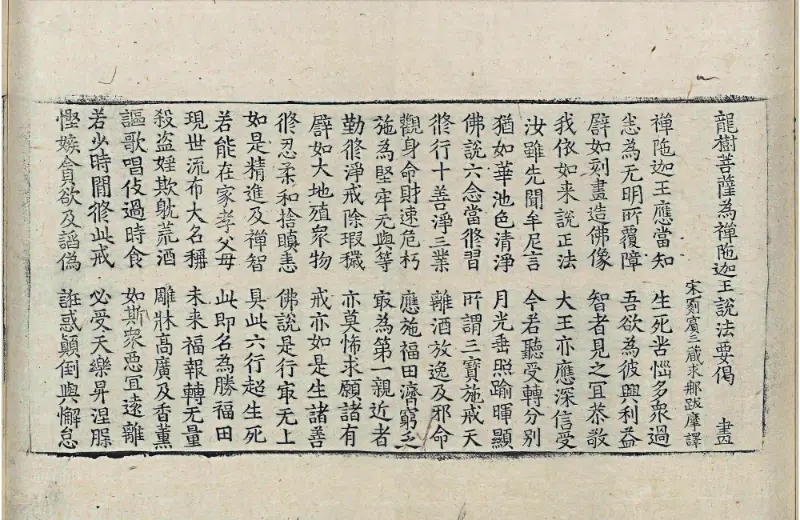 龍樹菩薩為禪陁迦王說法要偈 畫
宋罽賓三蔵求那跋摩譯
禪陁迦王應當知 生死苦惱多衆過
悉為无明所覆障 吾欲為彼興利益
譬如刻畫造佛像 智者見之冝恭敬
我依如来說正法 大王亦應深信受
汝雖先聞牟尼言 今若聽受轉分别
猶如華池色清淨 月光垂照踰暉顯
佛說六念當修習 所謂三寶施戒天
修行十善淨三業 離酒放逸及邪命
觀身命財速危朽 應施福田濟窮乏
施為堅牢无與等 㝡為第一親近者
勤修淨戒除瑕穢 亦莫悕求願諸有
譬如大地殖衆物 戒亦如是生諸善
修忍柔和捨瞋恚 佛說是行㝡无上
如是精進及禪智 具此六行超生死
若能在家孝父母 此即名為勝福田
現世流布大名稱 未来福報轉无量
殺盗婬欺躭荒酒 雕牀高廣及香薰
謳歌唱伎過時食 如斯衆惡冝遠離
若少時間修此戒 必受天樂昇涅槃
慳嫉貪欲及謟偽 誑惑顛倒與懈怠